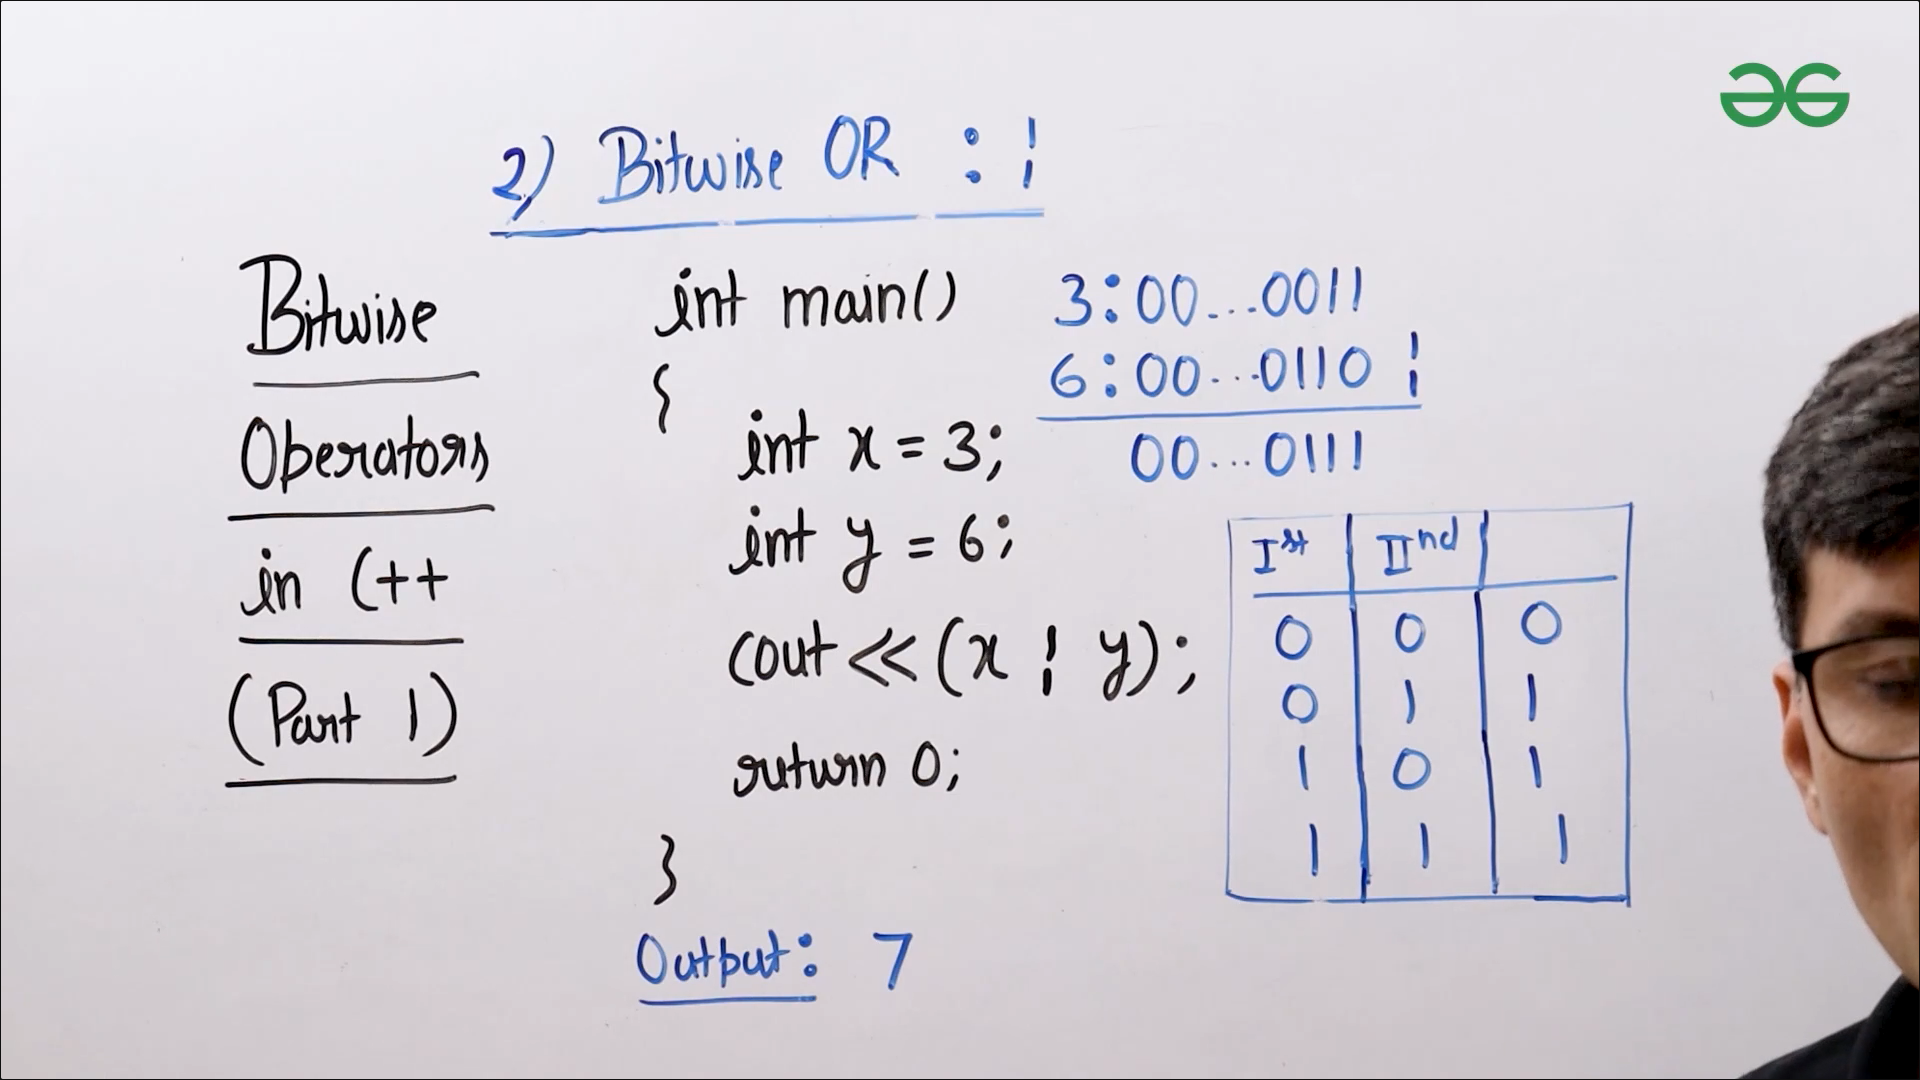 2) Bitwise OR : |
Bitwise
Operators
in C++
(Part 1)
int main()
{
int x = 3;
int y = 6;
cout << (x | y);
return 0;
}
Output: 7
3:00...0011
6:00...0110 |
00...0111
Ist IInd
0 0 0
0 1 1
1 0 1
1 1 1